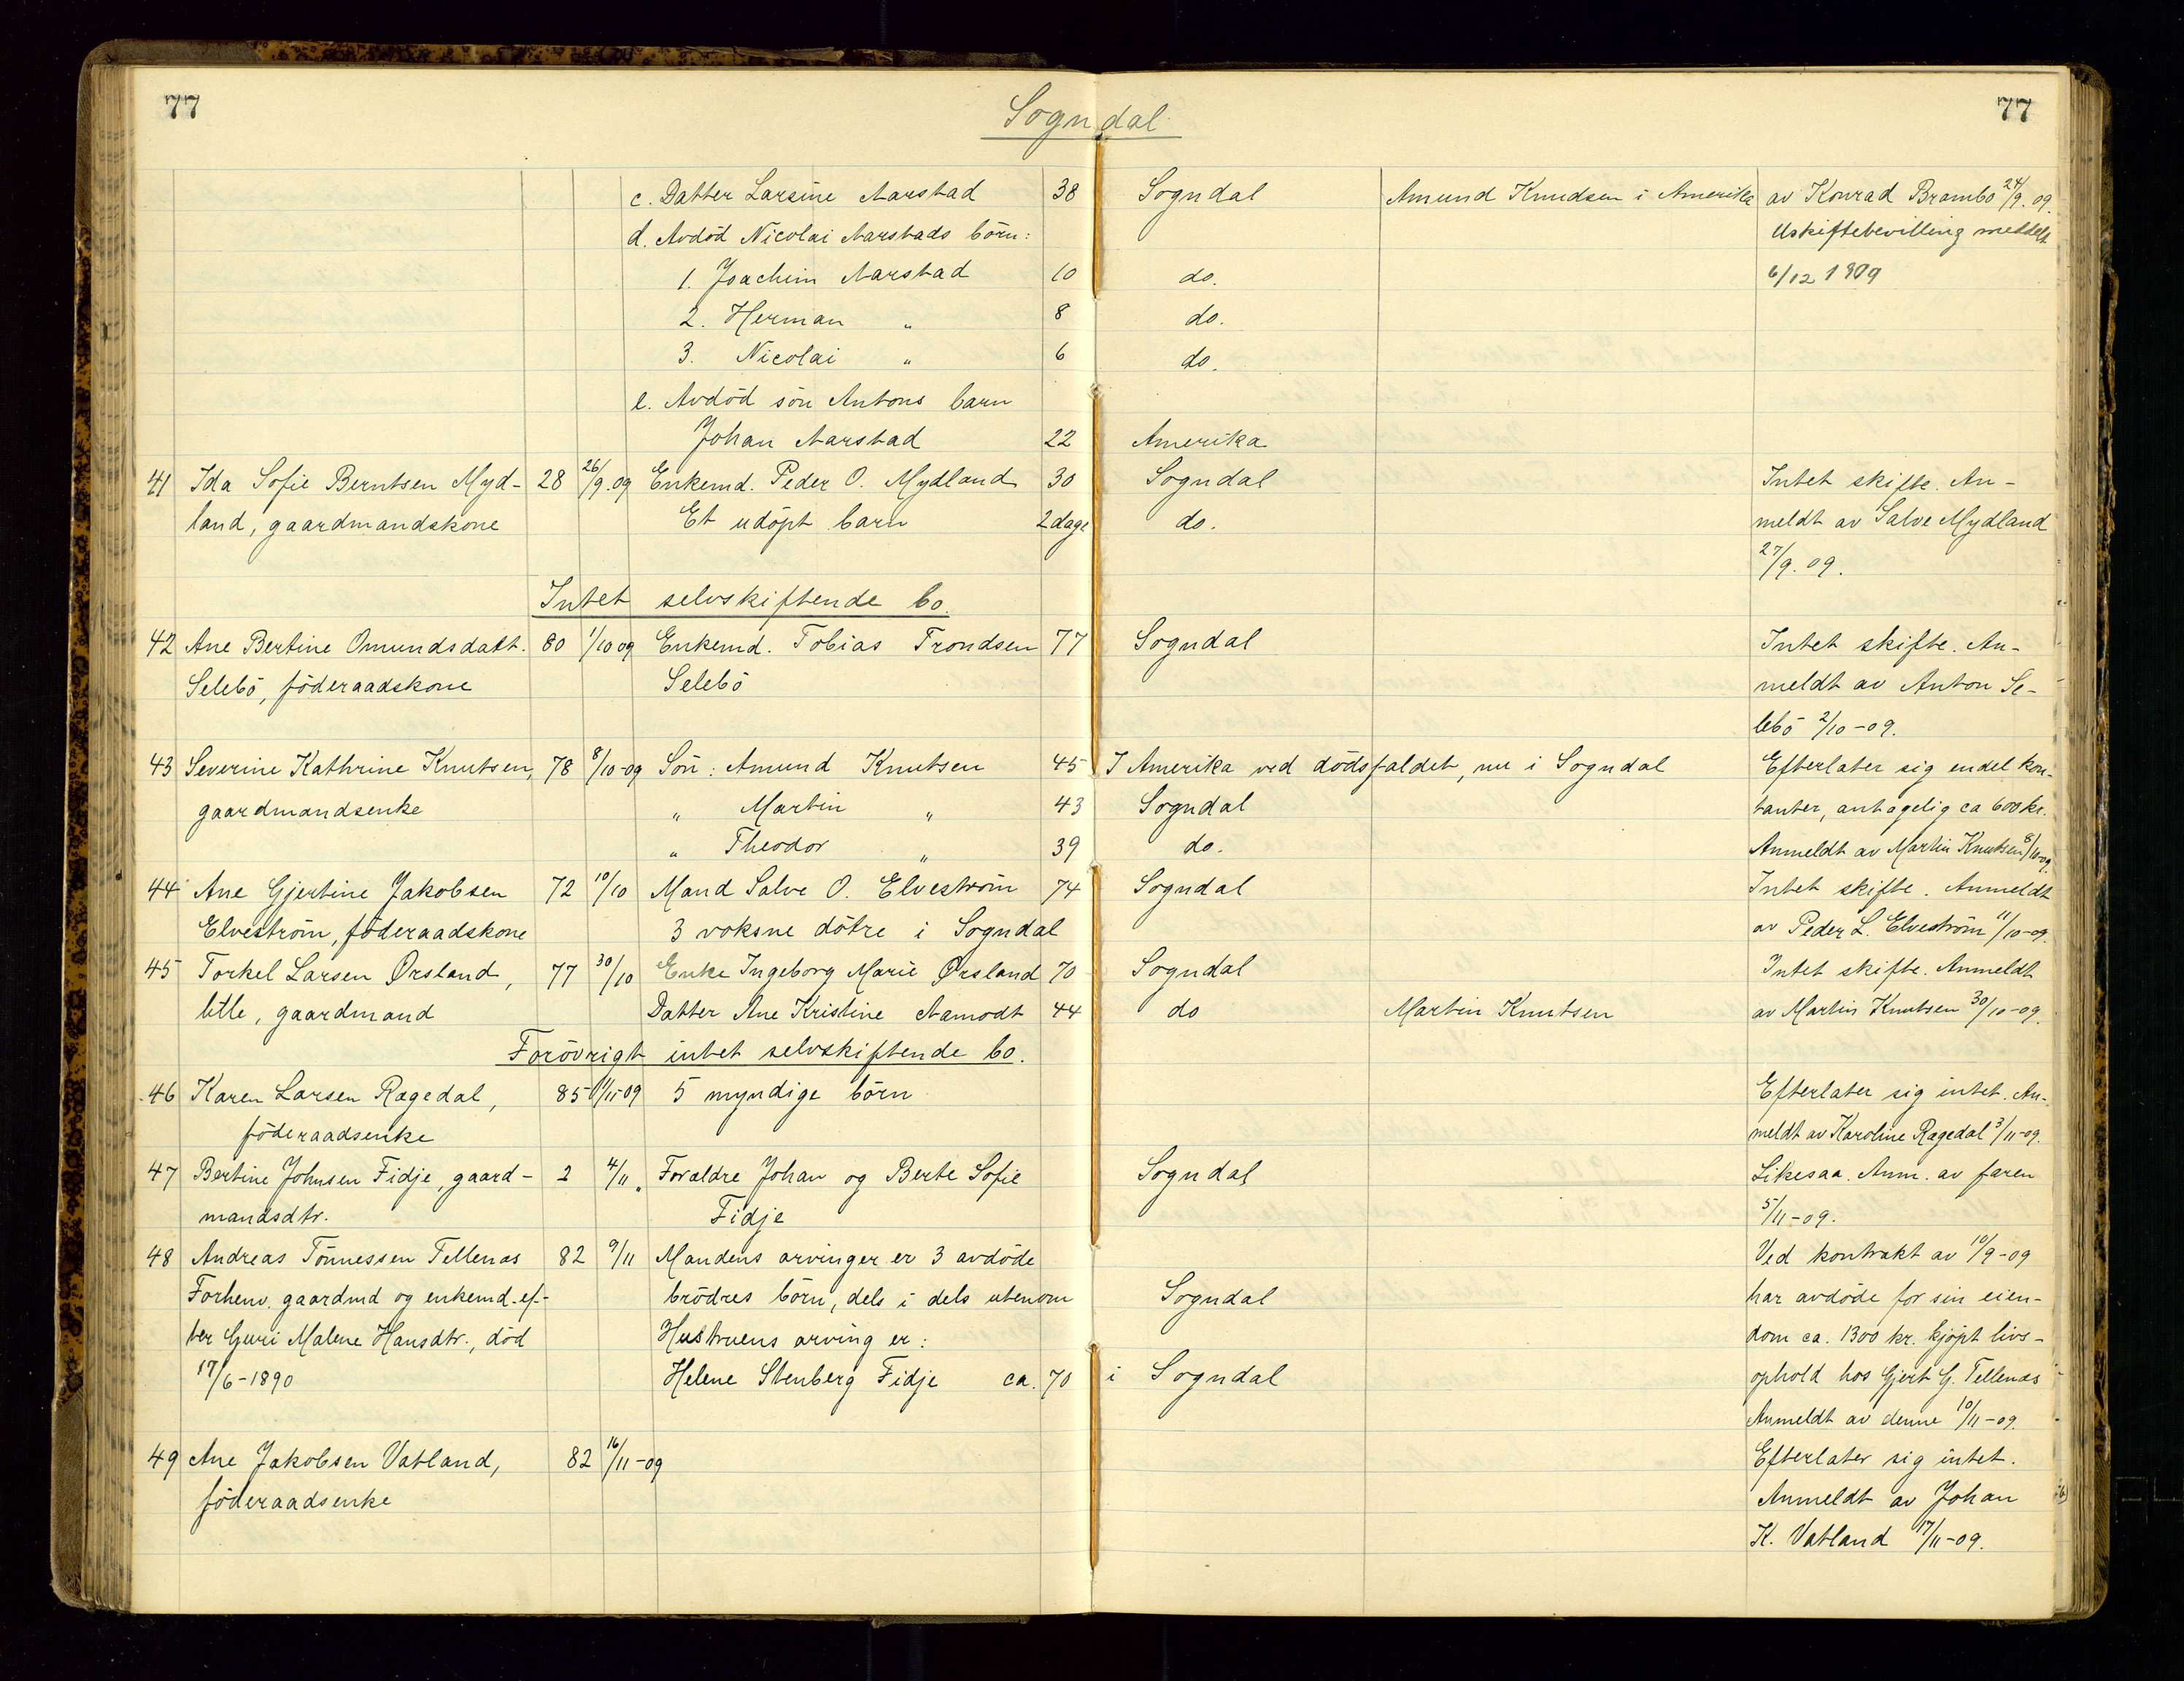 77
Sogndal
77
c. Datter Larsine Aarstad 38 Sogndal Amund Knudsen i Amerika av Konrad Brambo 24/9. 09.
d. Avdöd Nicolai Aarstads börn: Uskiftebevilling meddelt
1. Joachim Aarstad 10 do. 6/12 1909
2. Herman " 8 do.
3. Nicolai " 6 do.
e. Avdöd sön Antons barn
Johan Aarstad 22 Amerika
41 Ida Sofie Berntsen Myd- 28 26/9.09 Enkemd. Peder O. Mydland 30 Sogndal Intet skifte. An-
land, gaardmandskone Et udöpt barn 2 dage do. meldt av Salve Mydland
27/9. 09.
Intet selvskiftende bo.
42 Ane Bertine Omundsdatt. 80 1/10 09 Enkemd. Tobias Trondsen 77 Sogndal Intet skifte. An-
Selebö, föderaadskone Selebö meldt av Anton Se-
lebö 2/10-09.
43 Severine Kathrine Knutsen, 78 8/10-09 Sön: Amund Knutsen 45 I Amerika ved dödsfaldet, nu i Sogndal Efterlater sig endel kon-
gaardmandsenke " Martin " 43 Sogndal tanter, antagelig ca 600 kr.
" Theodor " 39 do. Anmeldt av Martin Knutsen 8/10-09.
44 Ane Gjertine Jakobsen 72 10/10 Mand Salve O. Elveström 74 Sogndal Intet skifte. Anmeldt
Elveström, föderaadskone 3 voksne dötre i Sogndal av Peder L. Elveström 11/10-09.
45 Torkel Larsen Ørsland, 77 30/10 Enke Ingeborg Marie Ørsland 70 Sogndal Intet skifte. Anmeldt
litle, gaardmand Datter Ane Kristine Aamodt 44 do Martin Knutsen av Martin Knutsen 30/10-09.
Forövrigt intet selvskiftende bo.
46 Karen Larsen Rægedal, 85 1/11-09 5 myndige börn Efterlater sig intet. An-
föderaadsenke meldt av Karoline Rægedal 3/11-09.
47 Bertine Johnsen Fidje, gaard- 2 4/11 " Forældre Johan og Berte Sofie Sogndal Likesaa. Anm. av faren
mandsdtr. Fidje 5/11-09.
48 Andreas Tönnessen Tellenæs 82 9/11 Mandens arvinger er 3 avdöde Ved kontrakt av 10/9-09
Forhenv. gaardmd og enkemd. ef- brödres börn, dels i dels utenom Sogndal har avdöde for sin eien-
ter Guri Malene Hansdtr., död Hustruens arving er: dom ca. 1300 kr. kjöpt livs-
17/6-1890 Helene Stenberg Fidje ca. 70 i Sogndal ophold hos Gjert G. Tellenæs
Anmeldt av denne 10/11-09.
49 Ane Jakobsen Vatland, 82 16/11-09 Efterlater sig intet.
föderaadsenke Anmeldt av Johan
K. Vatland 17/11-09.